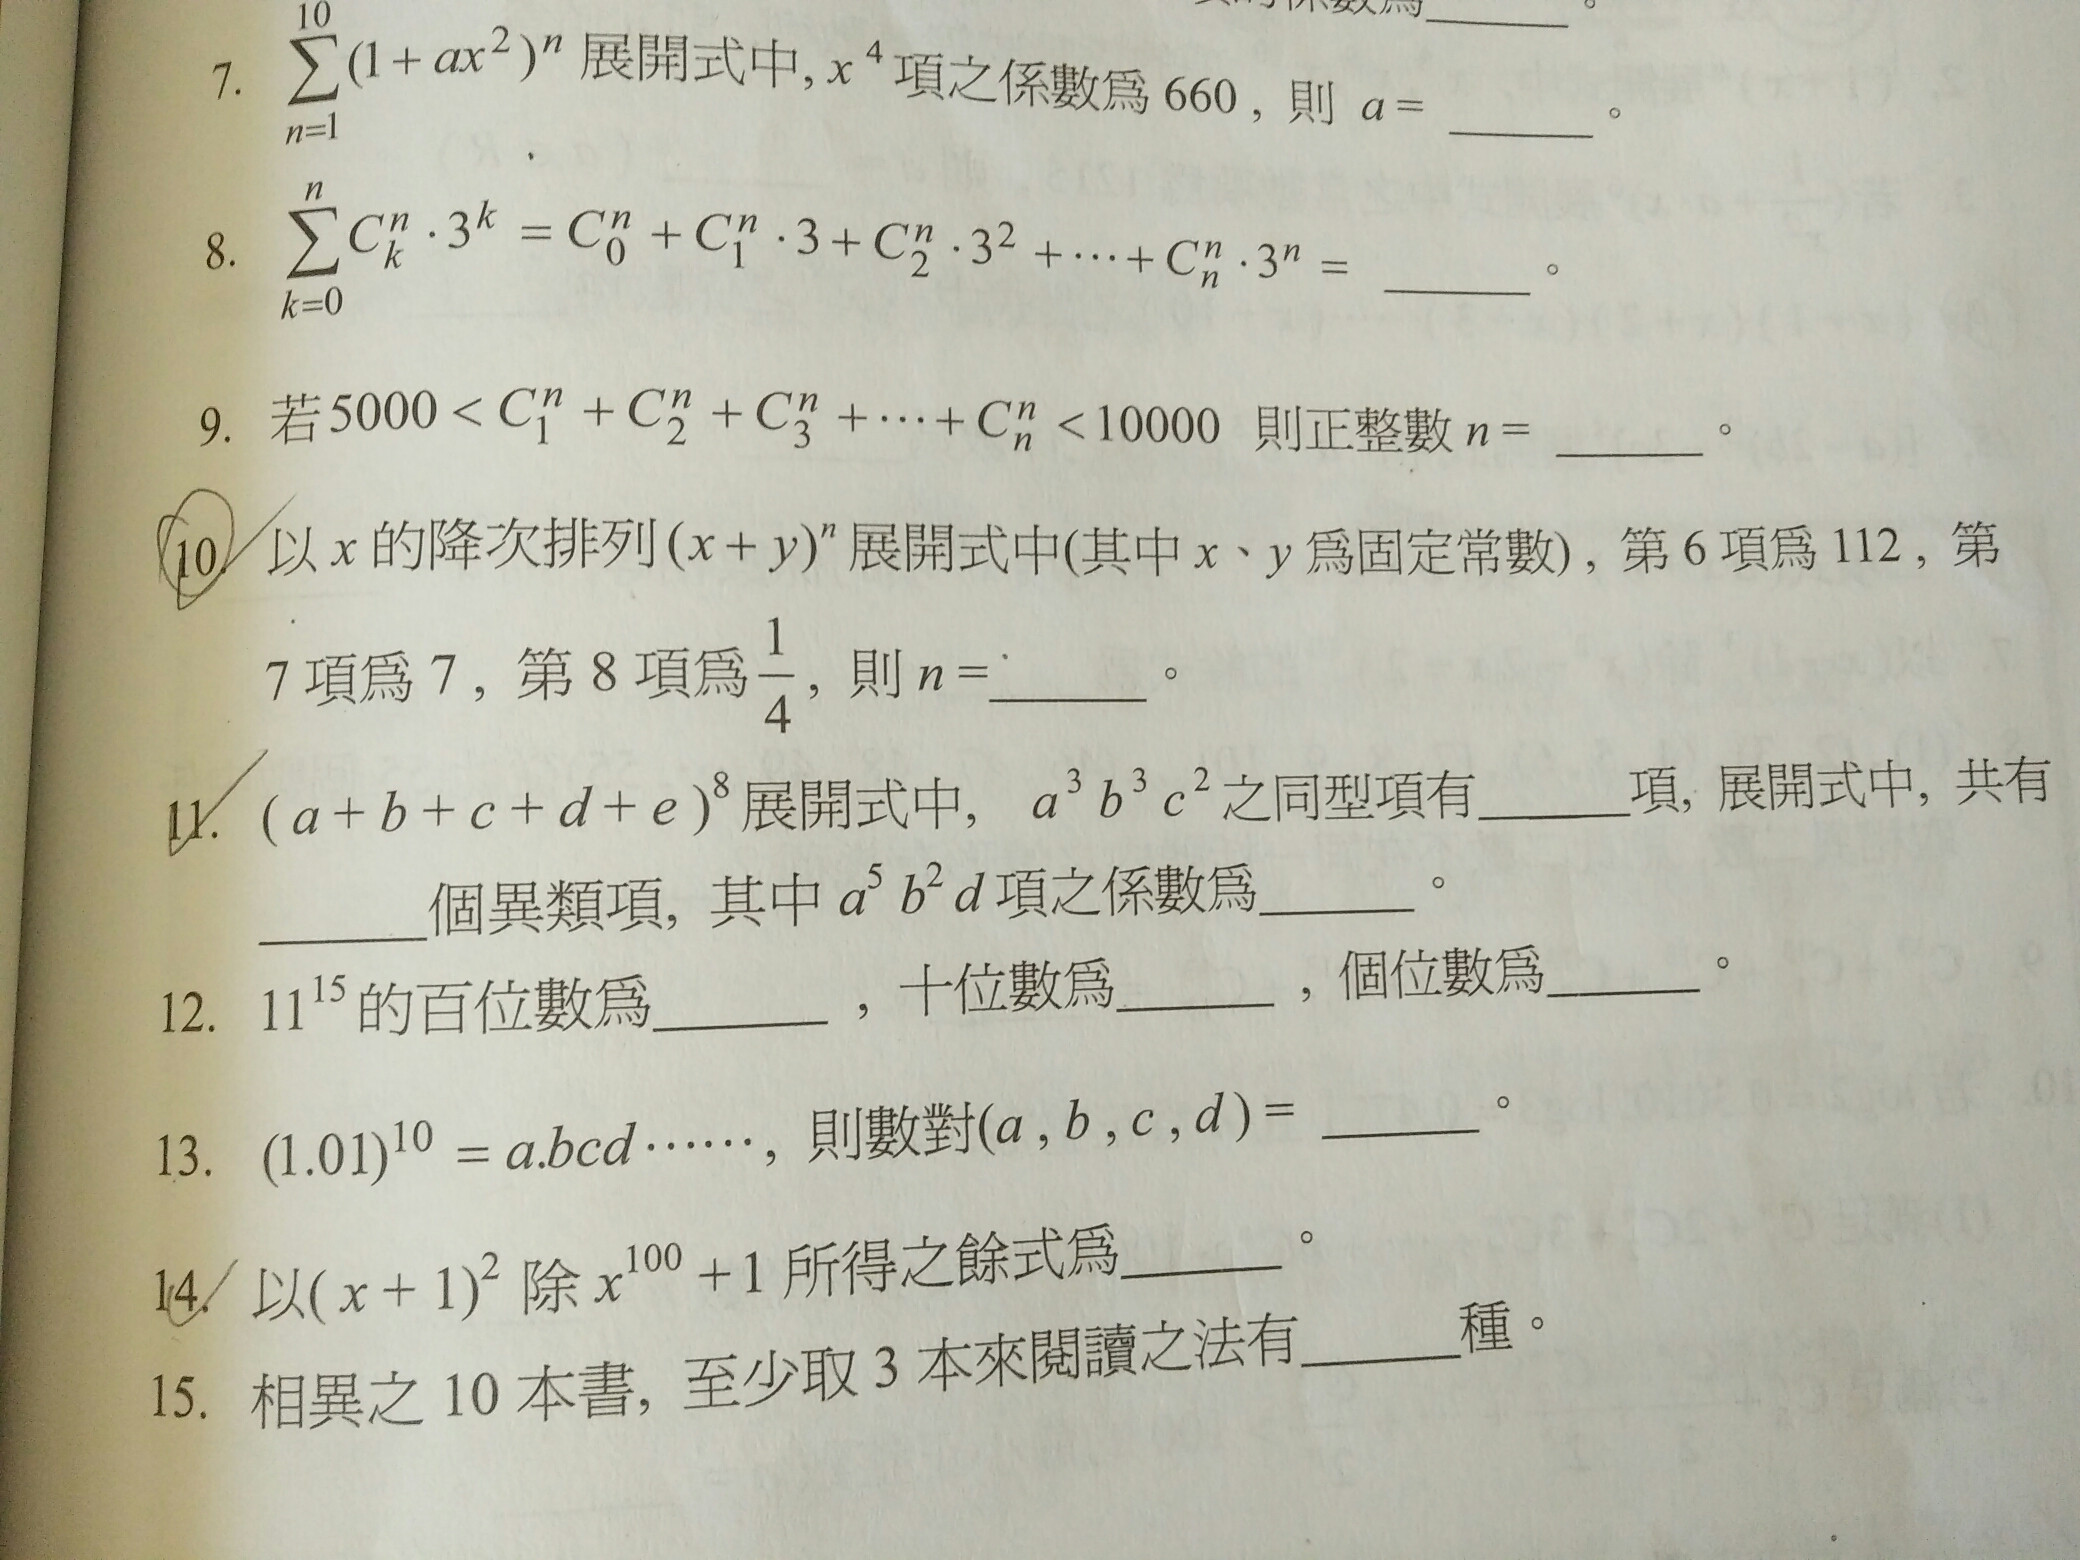 係數為______。
7. \sum_{n=1}^{10}(1+ax^2)^n 展開式中, x^4 項之係數為 660 , 則 a = ______。
8. \sum_{k=0}^{n} C_k^n · 3^k = C_0^n + C_1^n · 3 + C_2^n · 3^2 + ··· + C_n^n · 3^n = ______。
9. 若 5000 < C_1^n + C_2^n + C_3^n + ··· + C_n^n < 10000 則正整數 n = ______。
10. 以 x 的降次排列 (x + y)^n 展開式中(其中 x、y 為固定常數) , 第 6 項為 112 , 第
7 項為 7 , 第 8 項為 \frac{1}{4} , 則 n = ______。
11. ( a + b + c + d + e )^8 展開式中, a^3 b^3 c^2 之同型項有______項, 展開式中, 共有
______個異類項, 其中 a^5 b^2 d 項之係數為______。
12. 11^{15} 的百位數為______ , 十位數為______ , 個位數為______。
13. (1.01)^{10} = a.bcd······, 則數對(a , b , c , d) = ______。
14. 以( x + 1)^2 除 x^{100} + 1 所得之餘式為______。
15. 相異之 10 本書, 至少取 3 本來閱讀之法有______種。